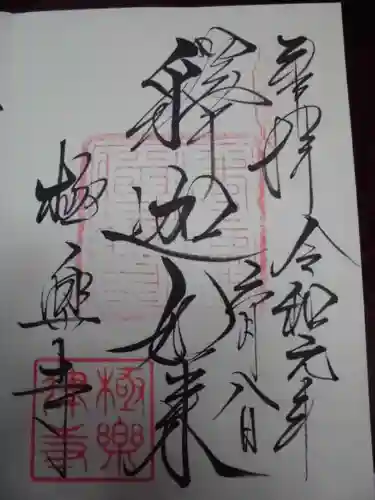 奉拝
令和元年
六月八日
釋迦如来
極樂寺
極樂
律寺